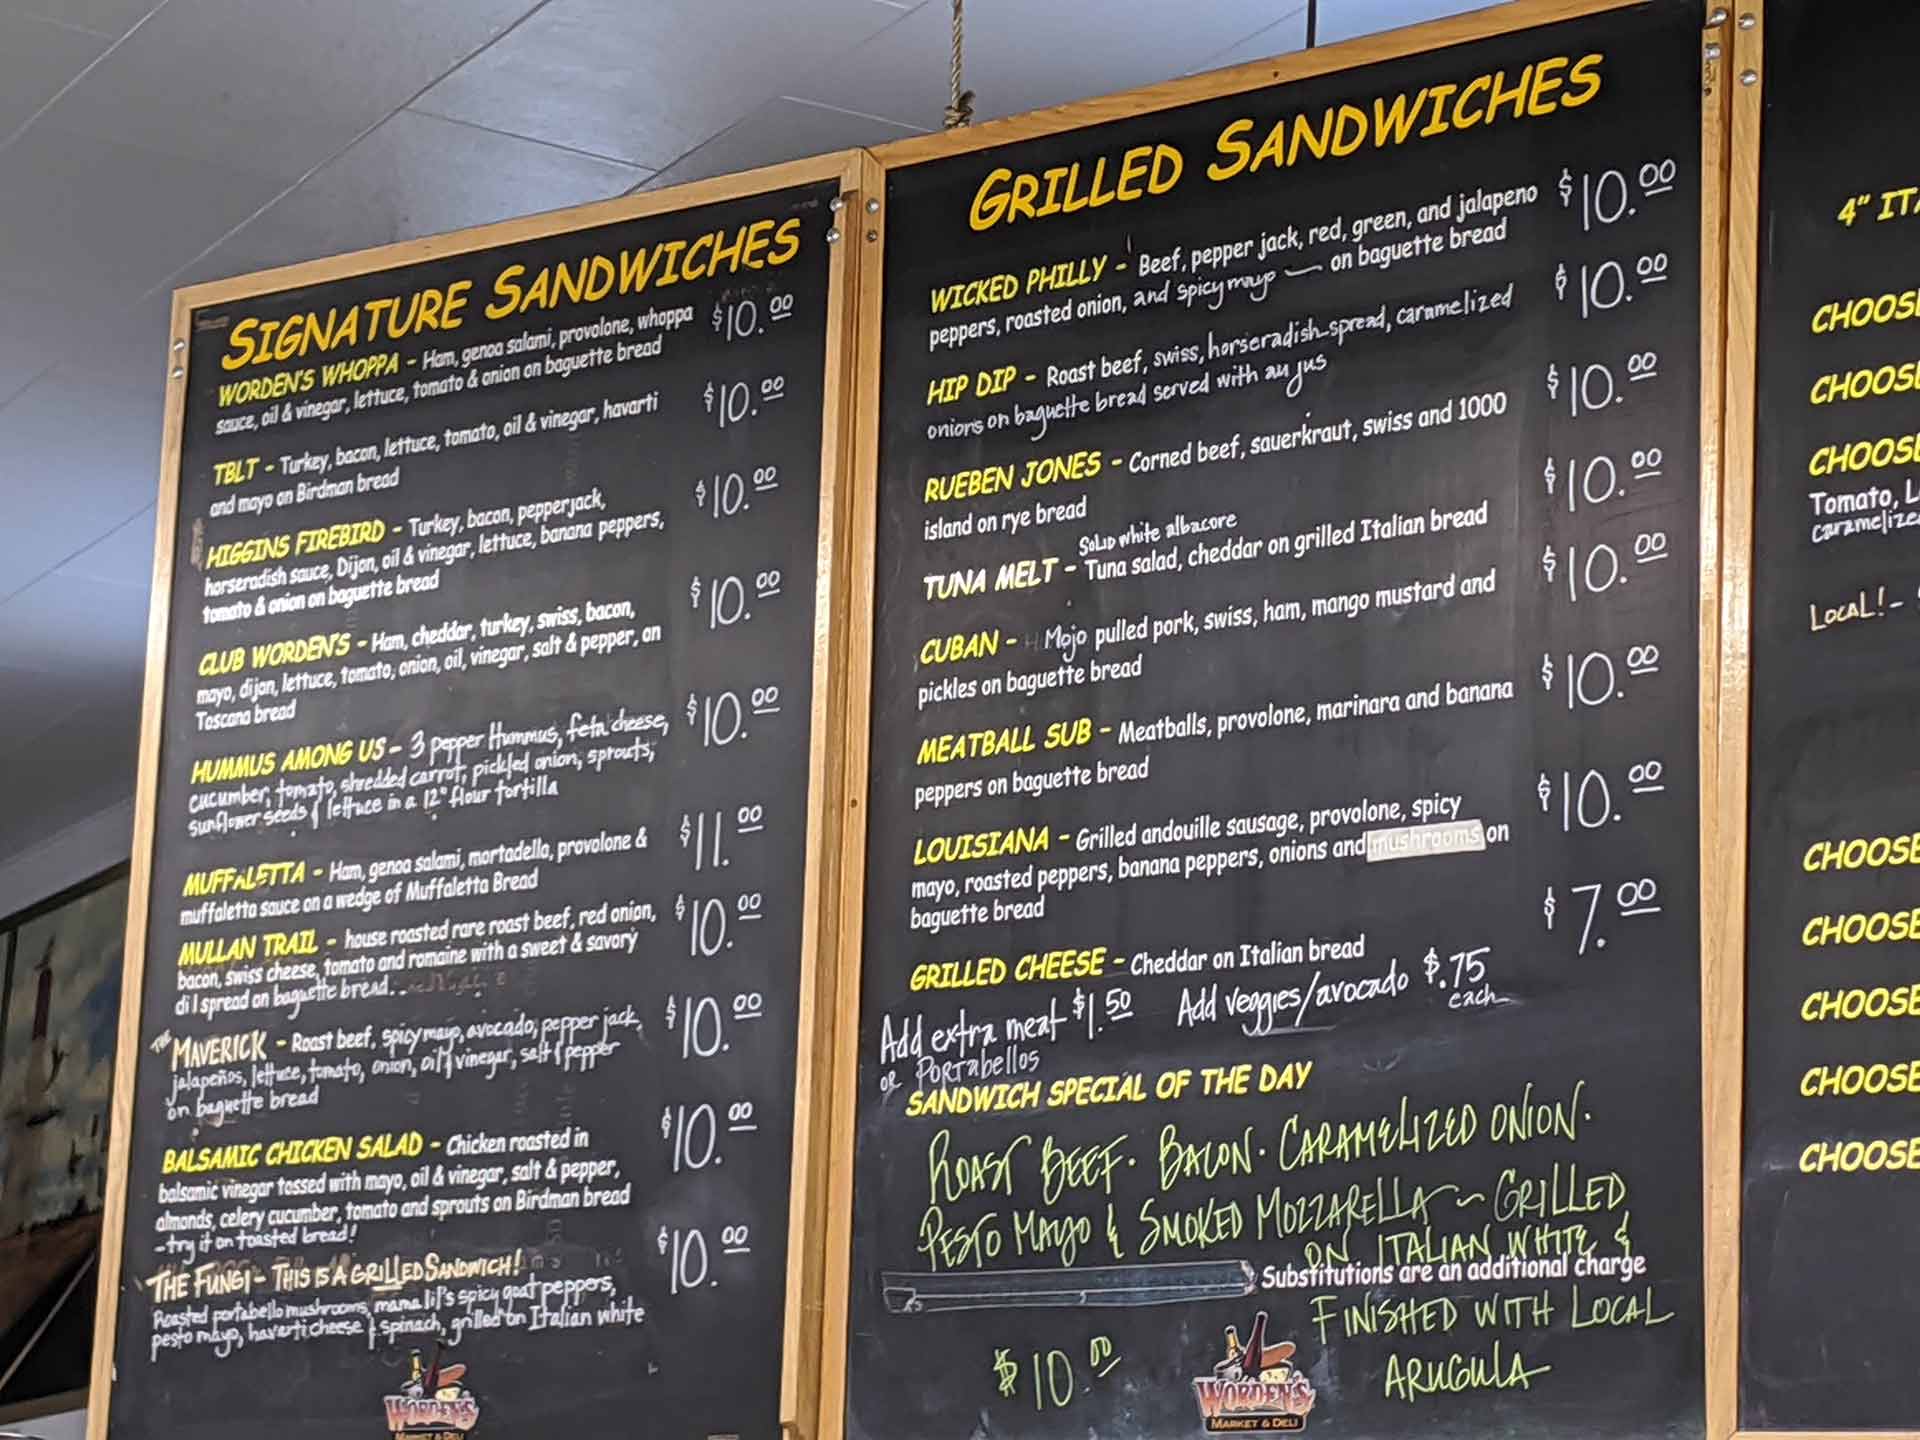 SIGNATURE SANDWICHES
WORDEN'S WHOPPA - Ham, genoa salami, provolone, whoppa $10.00
sauce, oil & vinegar, lettuce, tomato & onion on baguette bread
TBLT - Turkey, bacon, lettuce, tomato, oil & vinegar, havarti $10.00
and mayo on Birdman bread
HIGGINS FIREBIRD - Turkey, bacon, pepperjack, $10.00
horseradish sauce, Dijon, oil & vinegar, lettuce, banana peppers,
tomato & onion on baguette bread
CLUB WORDEN'S - Ham, cheddar, turkey, swiss, bacon, $10.00
mayo, dijon, lettuce, tomato, onion, oil, vinegar, salt & pepper, on
Toscana bread
HUMMUS AMONG US - 3 pepper Hummus, feta cheese, $10.00
cucumber, tomato, shredded carrot, pickled onion, sprouts,
sunflower seeds & lettuce in a 12" flour tortilla
MUFFALETTA - Ham, genoa salami, mortadella, provolone & $11.00
muffaletta sauce on a wedge of Muffaletta Bread
MULLAN TRAIL - house roasted rare roast beef, red onion, $10.00
bacon, swiss cheese, tomato and romaine with a sweet & savory
dil spread on baguette bread..
THE MAVERICK - Roast beef, spicy mayo, avocado, pepper jack, $10.00
jalapeños, lettuce, tomato, onion, oil & vinegar, salt & pepper
on baguette bread
BALSAMIC CHICKEN SALAD - Chicken roasted in $10.00
balsamic vinegar tossed with mayo, oil & vinegar, salt & pepper,
almonds, celery cucumber, tomato and sprouts on Birdman bread
- try it on toasted bread!
THE FUNGI - THIS IS A GRILLED SANDWICH! $10.00
Roasted portabello mushrooms, mama lil's spicy goat peppers,
pesto mayo, havarti cheese & spinach, grilled on Italian white
WORDEN'S
MARKET & DELI
GRILLED SANDWICHES
WICKED PHILLY - Beef, pepper jack, red, green, and jalapeno $10.00
peppers, roasted onion, and spicy mayo — on baguette bread
HIP DIP - Roast beef, swiss, horseradish spread, caramelized $10.00
onions on baguette bread served with au jus
RUEBEN JONES - Corned beef, sauerkraut, swiss and 1000 $10.00
island on rye bread
Solid white albacore
TUNA MELT - Tuna salad, cheddar on grilled Italian bread $10.00
CUBAN - Mojo pulled pork, swiss, ham, mango mustard and $10.00
pickles on baguette bread
MEATBALL SUB - Meatballs, provolone, marinara and banana $10.00
peppers on baguette bread
LOUISIANA - Grilled andouille sausage, provolone, spicy $10.00
mayo, roasted peppers, banana peppers, onions and mushrooms on
baguette bread
GRILLED CHEESE - Cheddar on Italian bread $7.00
Add extra meat $1.50 Add veggies/avocado $.75
or Portabellos each
SANDWICH SPECIAL OF THE DAY
ROAST BEEF. BACON. CARAMELIZED ONION.
PESTO MAYO & SMOKED MOZZARELLA ~ GRILLED
ON ITALIAN WHITE &
Substitutions are an additional charge
FINISHED WITH LOCAL
ARUGULA
$10.00
WORDEN'S
MARKET & DELI
4" ITA
CHOOSE
CHOOSE
CHOOSE
Tomato, L
caramelized
LOCAL! -
CHOOSE
CHOOSE
CHOOSE
CHOOSE
CHOOSE